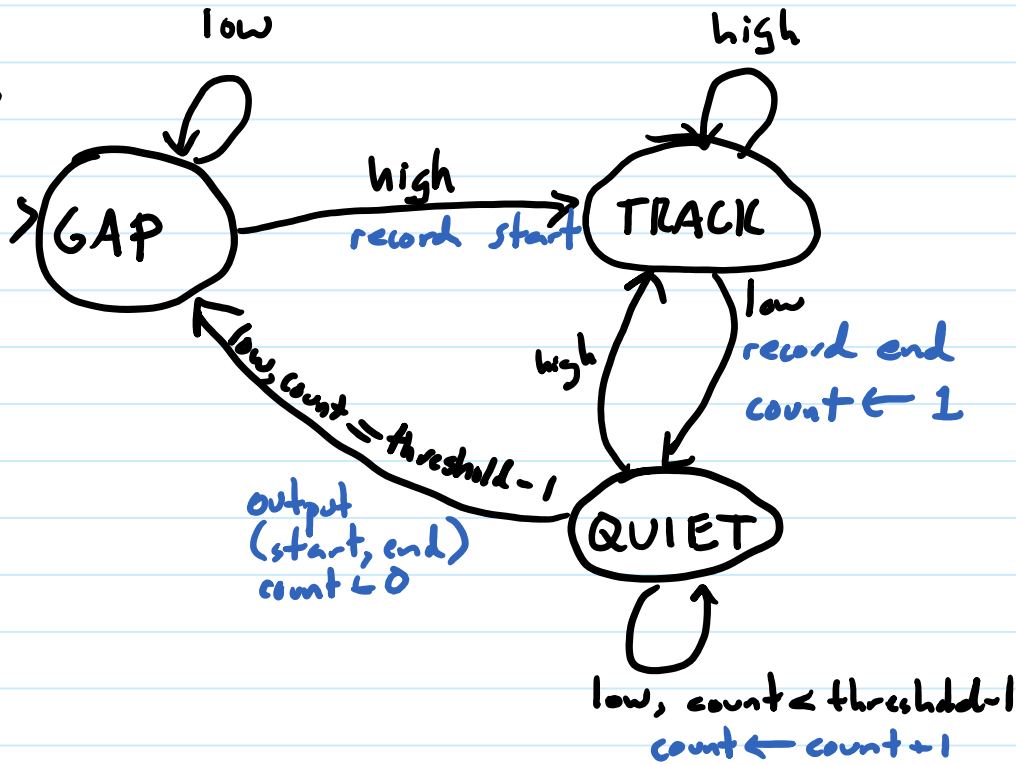 low
high
GAP
high
record start
TRACK
low
record end
count ← 1
high
low, count = threshold - 1
output
(start, end)
count ← 0
QUIET
low, count < threshold - 1
count ← count + 1